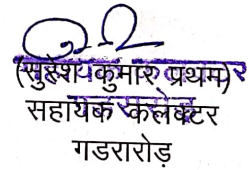 (सुरेश कुमार प्रथम)
सहायक कलेक्टर
गडरारोड़